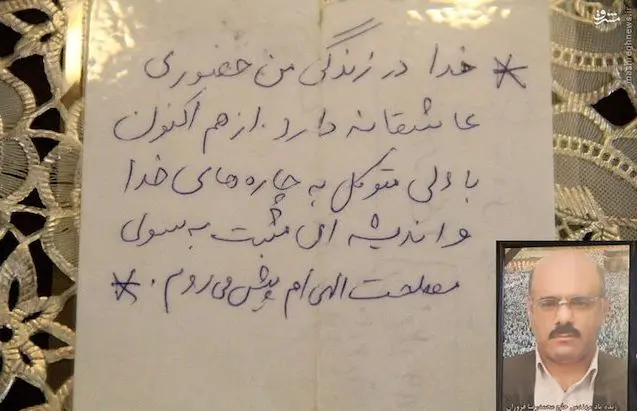 * خدا در زندگی من حضوری
عاشقانه دارد. از هم اکنون
با دلی متوکل به چاره های خدا
و اندیشه ای مثبت به سوی
مصلحت الهی ام پیش می روم. *
مشرق
mashreghnews.ir
زنده یاد مهندس حاج محمدرضا فروزان